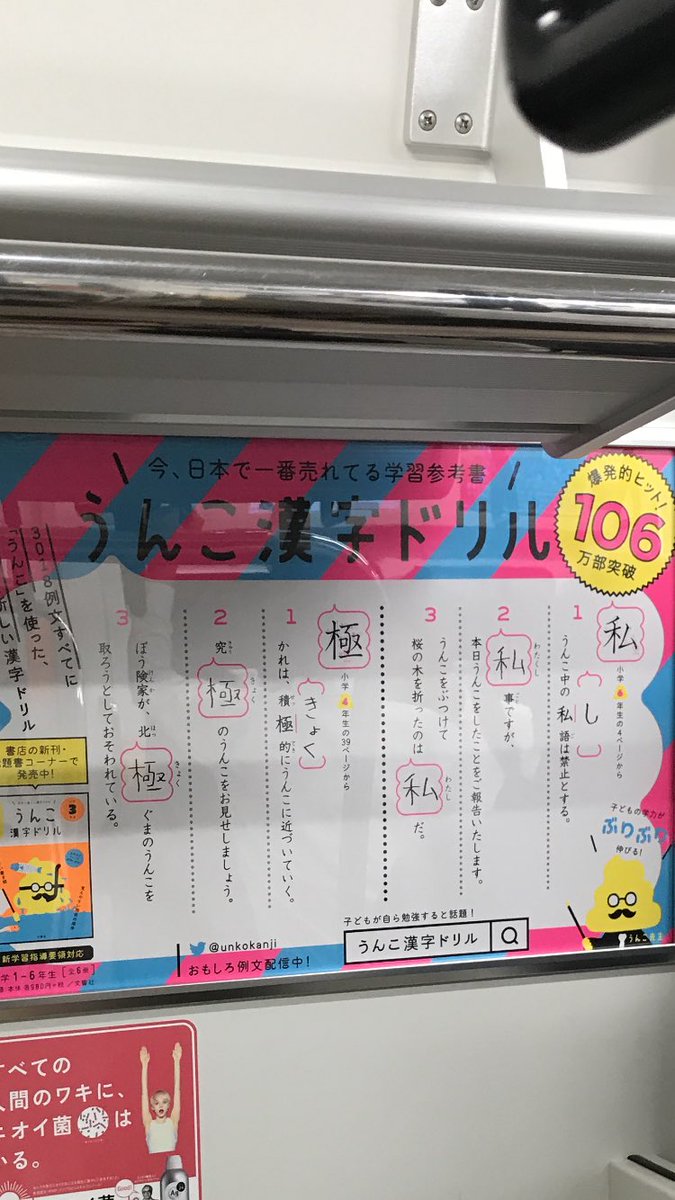 今、日本で一番売れてる学習参考書
うんこ漢字ドリル
爆発的ヒット!
106
万部突破
私
小学6年生の4ページから
1
し
うんこ中の私語は禁止とする。
2
わたくし
私事ですが、
本日うんこをしたことをご報告いたします。
3
うんこをぶつけて
桜の木を折ったのは私だ。
わたし
極
小学4年生の39ページから
1
きょく
かれは、積極的にうんこに近づいていく。
2
究極のうんこをお見せしましょう。
きゅう
きょく
3
ぼう険家が、北極ぐまのうんこを
けんか
ほっ
きょく
取ろうとしておそわれている。
3018例文すべてに
「うんこ」を使った、
しい漢字ドリル
書店の新刊・
題書コーナーで
発売中!
うんこ
漢字ドリル
3
子どもの学力が
ぶりぶり
伸びる!
子どもが自ら勉強すると話題!
うんこ漢字ドリル
@unkokanji
おもしろ例文配信中!
新学習指導要領対応
学1-6年生[全6冊]
本体 各980円+税/文響社
すべての
人間のワキに、
ニオイ菌は
いる。